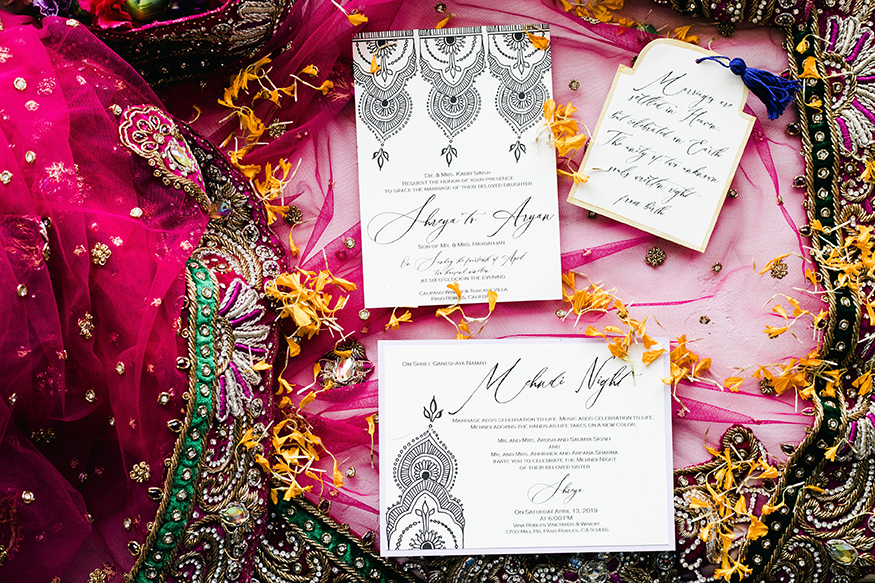 DR. & MRS. KABIR SINGH
REQUEST THE HONOR OF YOUR PRESENCE
TO GRACE THE MARRIAGE OF THEIR BELOVED DAUGHTER
Shreya to Aryan
SON OF MR. & MRS. HARIRAJAN
On Sunday the fourteenth of April
two thousand nineteen
AT 5:30 O'CLOCK IN THE EVENING
CALIPASO WINERY & TUSCANY VILLA,
PASO ROBLES, CALIFORNIA
Marriages are
settled in Heaven,
but celebrated in Earth
The unity of two unknown
souls written right
from birth
OM SHREE GANESHAYA NAMAH
Mehndi Night
MARRIAGE ADDS CELEBRATION TO LIFE. MUSIC ADDS CELEBRATION TO LIFE.
MEHNDI ADORNS THE HANDS AS LIFE TAKES ON A NEW COLOR.
MR. AND MRS. ARUSH AND SAUMYA SIGNH
AND
MR. AND MRS. ABHISHEK AND ARPANA SHARMA
INVITE YOU TO CELEBRATE THE MEHNDI NIGHT
OF THEIR BELOVED SISTER
Shreya
ON SATURDAY APRIL 13, 2019
AT 6:00 PM
VINA ROBLES VINEYARDS & WINERY
3700 MILL RD, PASO ROBLES, CA 93446